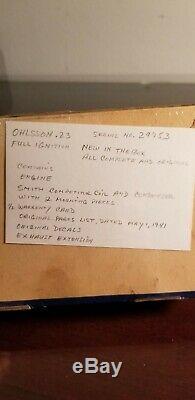 OHLSSON .23 SERIAL NO. 29953
FULL IGNITION NEW IN THE BOX
ALL COMPLETE AND ORIGINAL
CONTAINS
ENGINE
SMITH COMPETITOR COIL AND CONDENSER
WITH 2 MOUNTING PIECES
1/2 WARRENTY CARD
ORIGINAL PARTS LIST, DATED MAY 1, 1941
ORIGINAL DECALS
EXHAUST EXTENSION
ebay